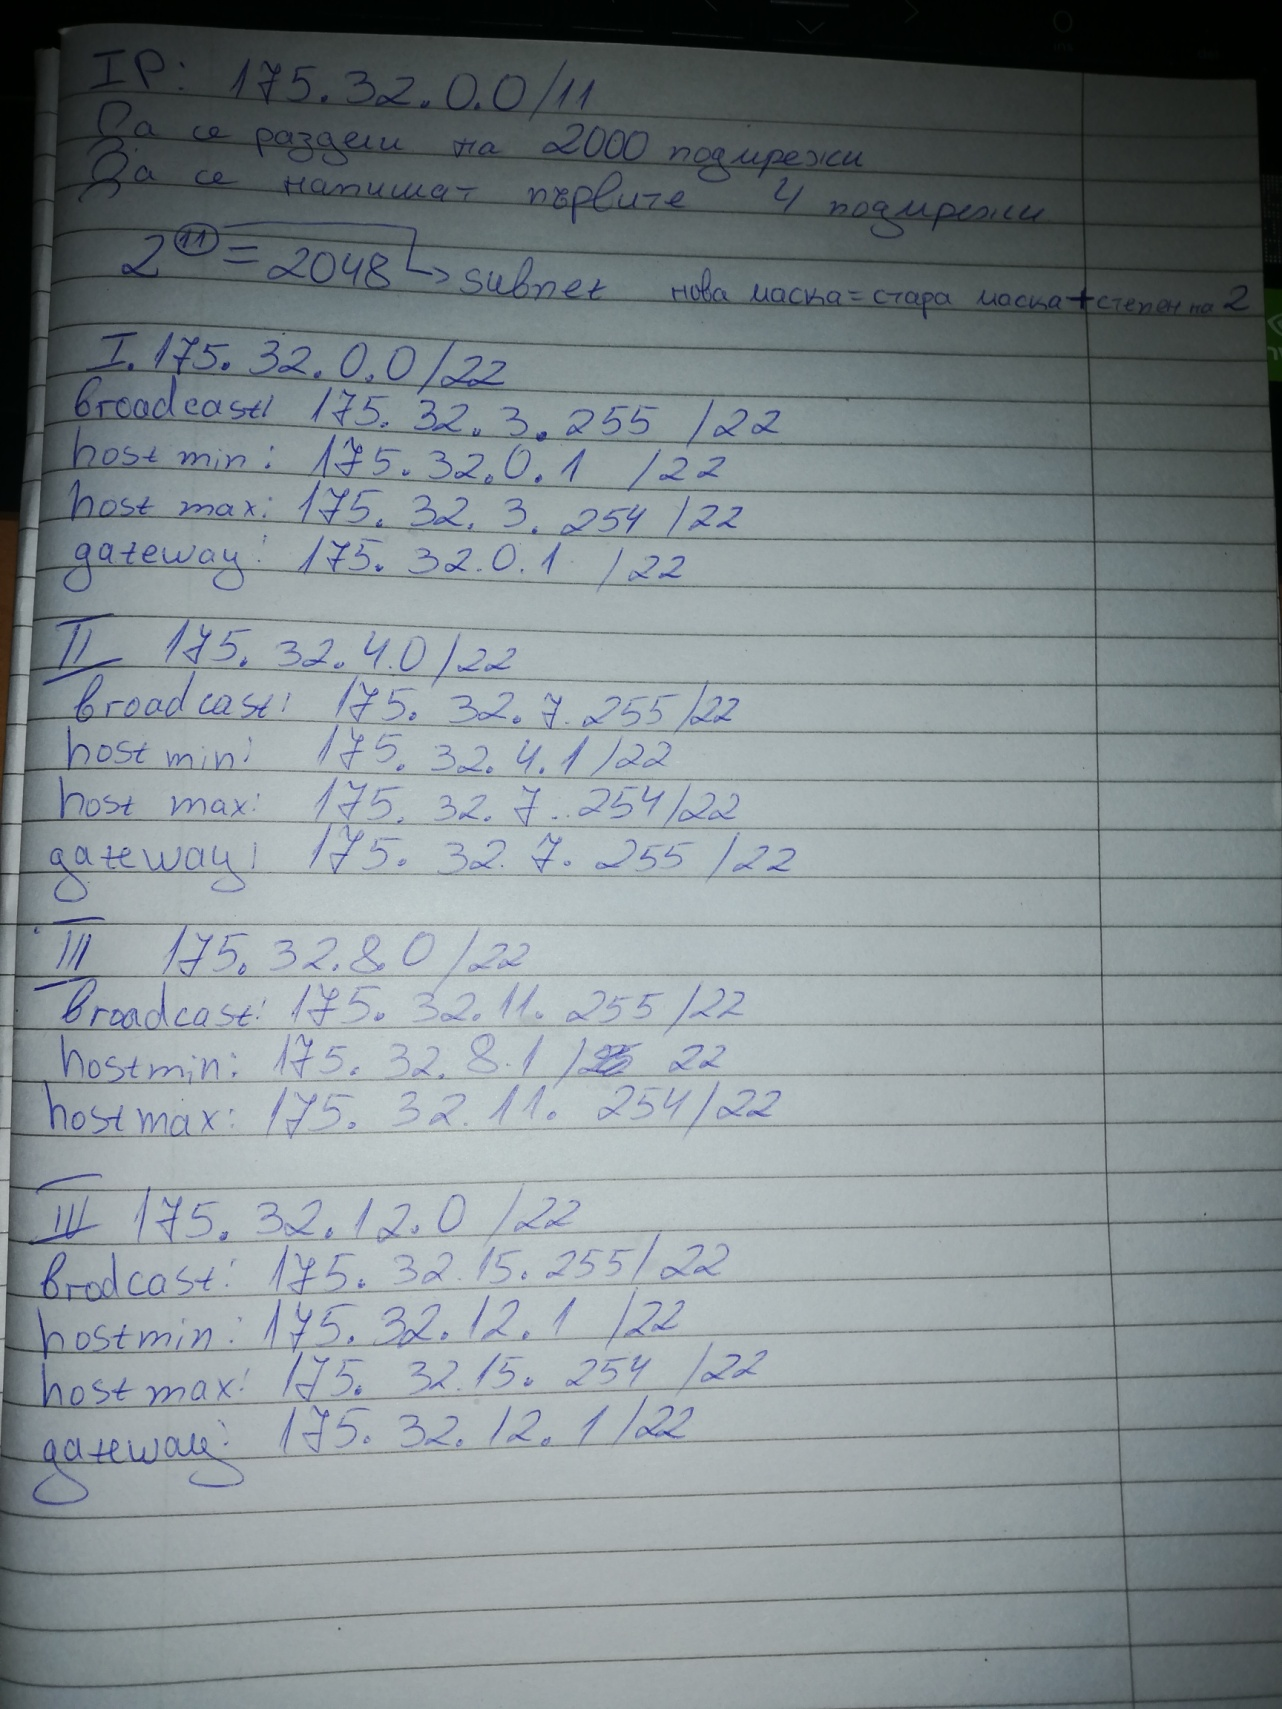 IP: 175.32.0.0/11
Да се раздели на 2000 подмрежи
Да се напишат първите 4 подмрежи
2^11 = 2048 -> subnet нова маска = стара маска + степен на 2
I. 175.32.0.0/22
broadcast: 175.32.3.255 /22
host min: 175.32.0.1 /22
host max: 175.32.3.254 /22
gateway: 175.32.0.1 /22
II 175.32.4.0/22
broadcast: 175.32.7.255/22
host min: 175.32.4.1/22
host max: 175.32.7.254/22
gateway: 175.32.7.255 /22
III 175.32.8.0/22
broadcast: 175.32.11.255/22
hostmin: 175.32.8.1 / 22
hostmax: 175.32.11.254/22
175.32.12.0 /22
brodcast: 175.32.15.255/22
hostmin: 175.32.12.1 /22
host max: 175.32.15.254 /22
gateway: 175.32.12.1/22